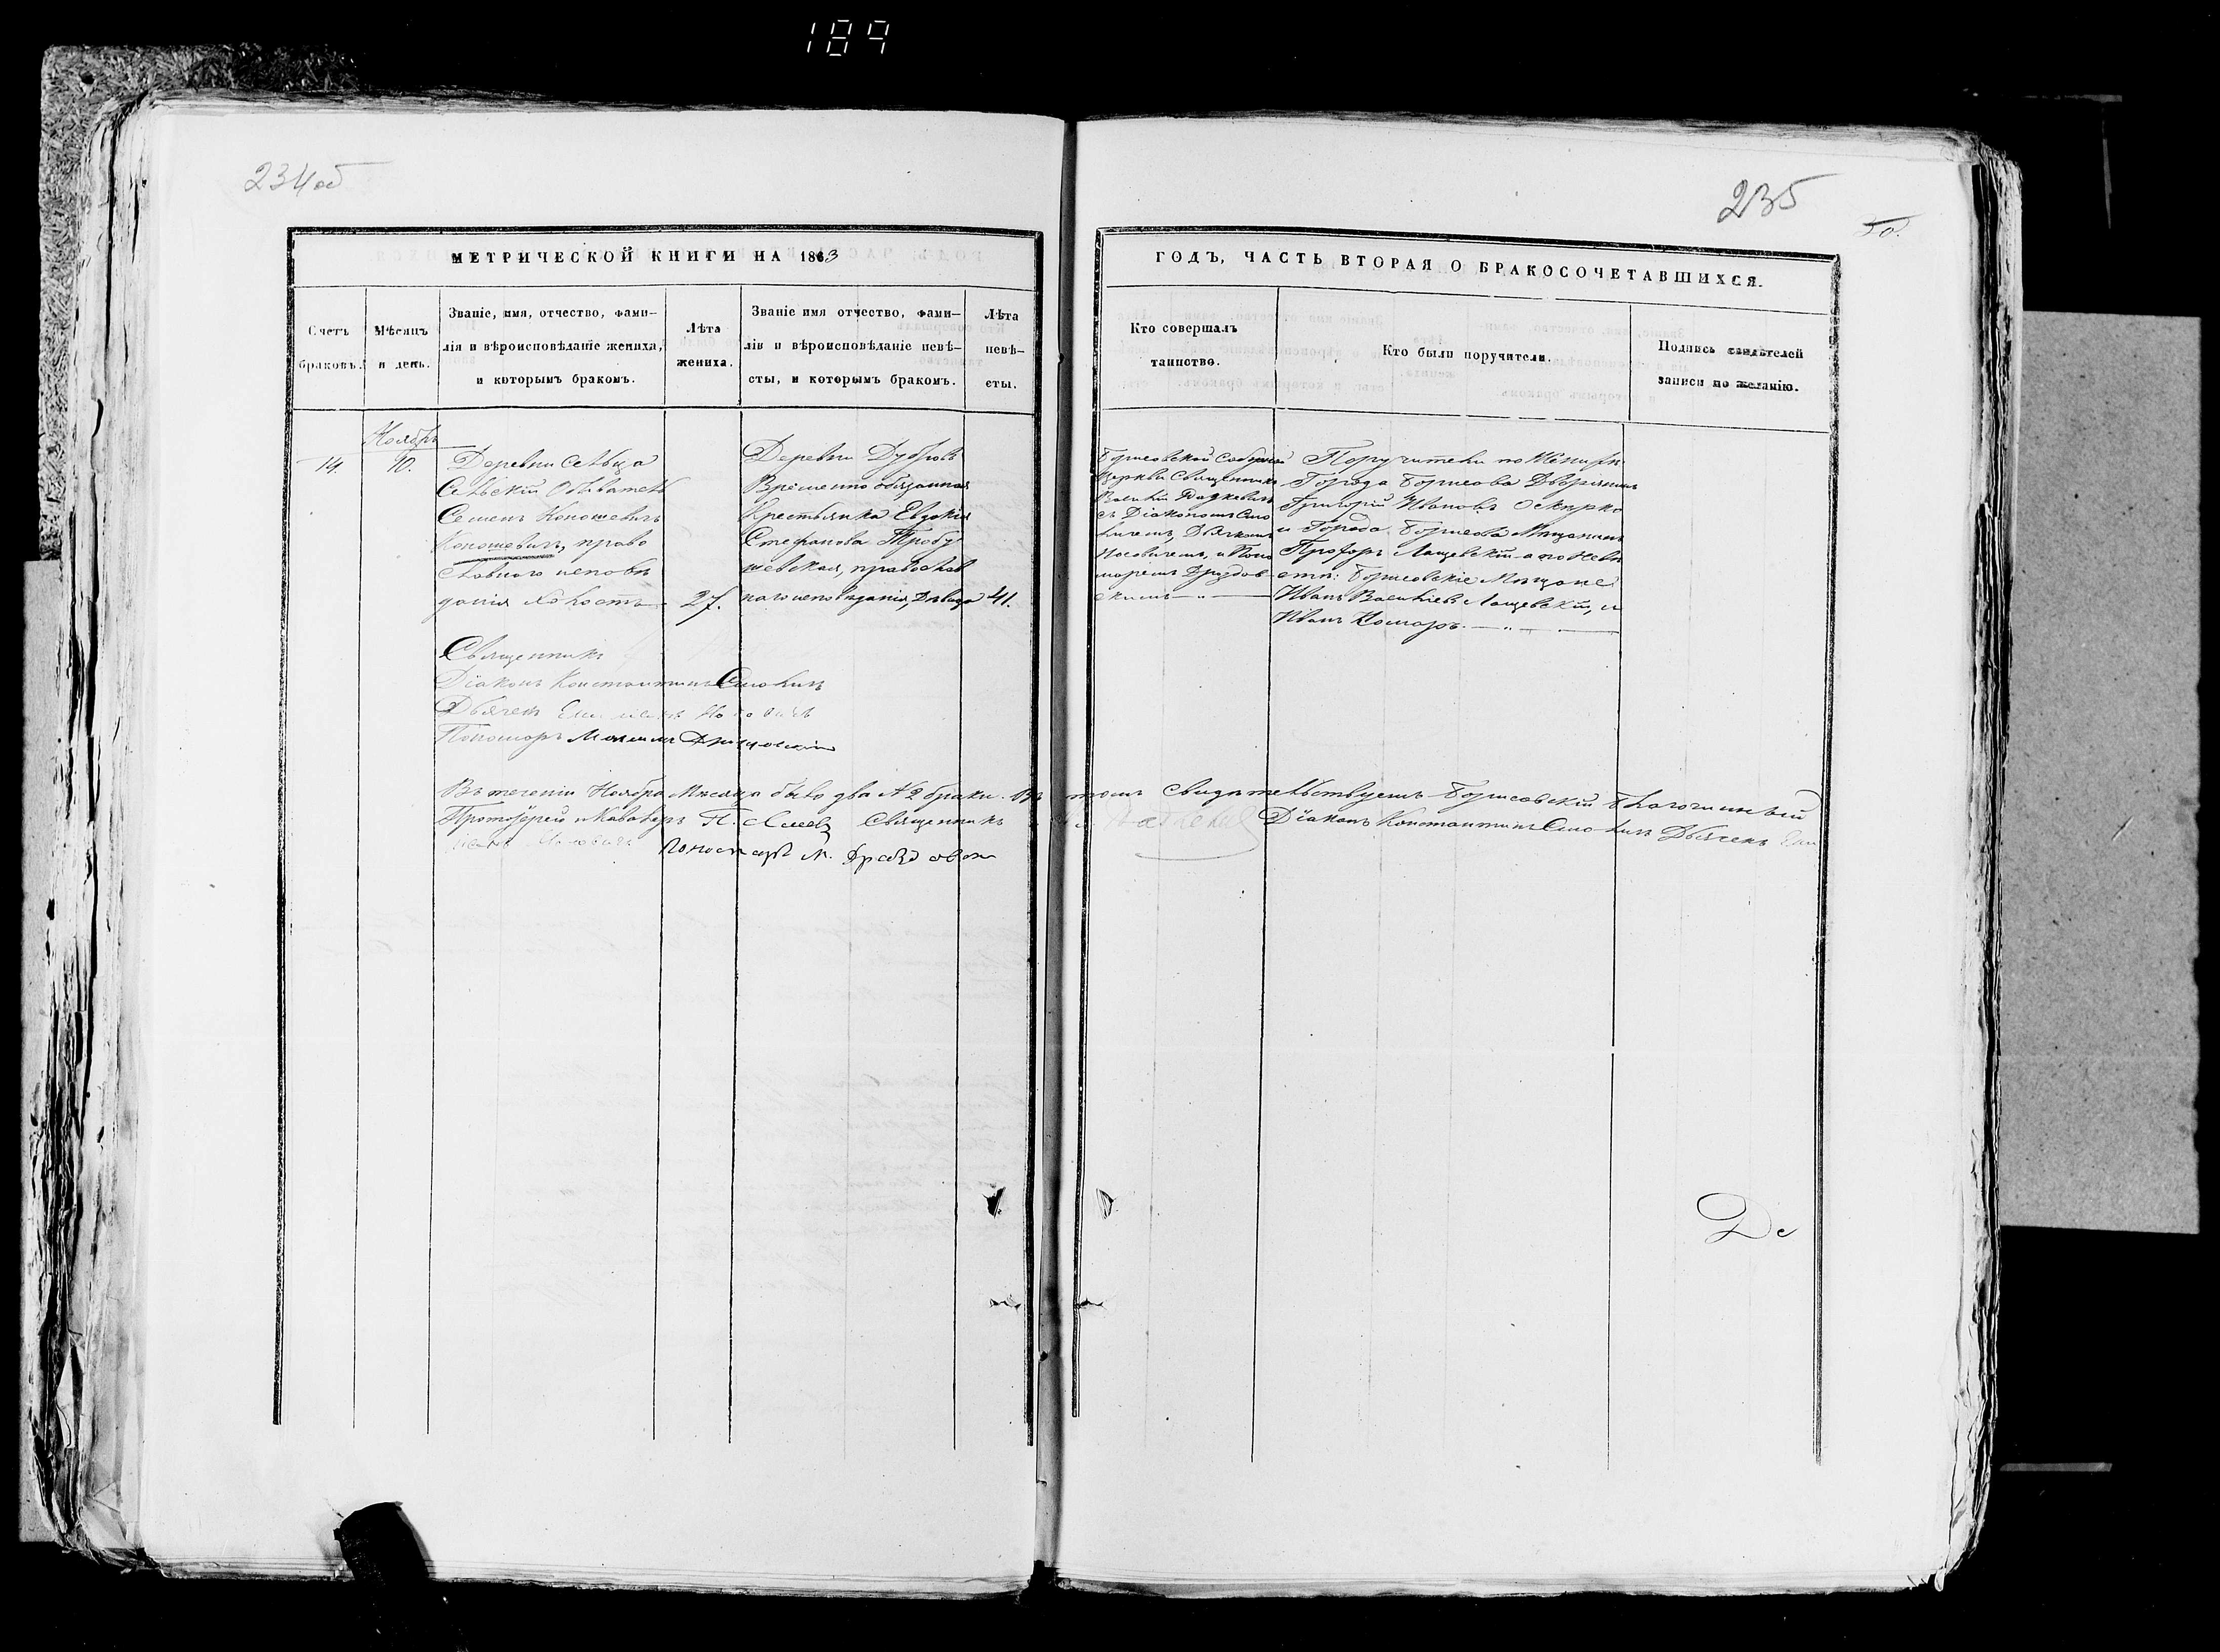 189
234об
235
50.
МЕТРИЧЕСКОЙ КНИГИ НА 1863
ГОДЪ, ЧАСТЬ ВТОРАЯ О БРАКОСОЧЕТАВШИХСЯ.
Счетъ
браковъ.
Мѣсяцъ
и день.
Званіе, имя, отчество, фами-
лія и вѣроисповѣданіе жениха,
и которымъ бракомъ.
Лѣта
жениха.
Званіе имя отчество, фами-
лія и вѣроисповѣданіе невѣ-
сты, и которымъ бракомъ.
Лѣта
невѣ-
сты.
Кто совершалъ
таинство.
Кто были поручители.
Подпись свидѣтелей
записи по желанію.
Ноябрь
19.
10.
Деревни Сельца
Сельскій Обыватель
Семенъ Коношевичъ
Коношевичъ, право
славнаго исповѣ
данія Холостъ
27.
Деревни Дубровъ
Временно обязанная
Крестьянка Евдокія
Стефанова
православ
наго исповѣданія, Дѣвица
41.
Борисовской Соборной
Церкви Священникъ
Василій
съ Діакономъ Смо
личемъ, Дьячкомъ
и Поно
маремъ Дроздов
скимъ
Поручители по Женихѣ
Города Борисова Дворянинъ
Григорій Ивановъ Оскирко
и Города Борисова Мѣщанинъ
Прохоръ Лащевскій а по Невѣ
стѣ: Борисовскіе Мѣщане
Иванъ Васильевъ Лащевскій, и
Иванъ Комаръ.
Священникъ
Діаконъ Константинъ Смоличъ
Дьячекъ
Пономарь
Въ теченіи Ноября Мѣсяца было два № 2 браки. Въ томъ Свидѣтельствуемъ Борисовскій Благочинный
Протоіерей и Кавалеръ П. Священникъ Діаконъ Константинъ Смоличъ Дьячекъ
Пономарь М. Дроздовск
Де